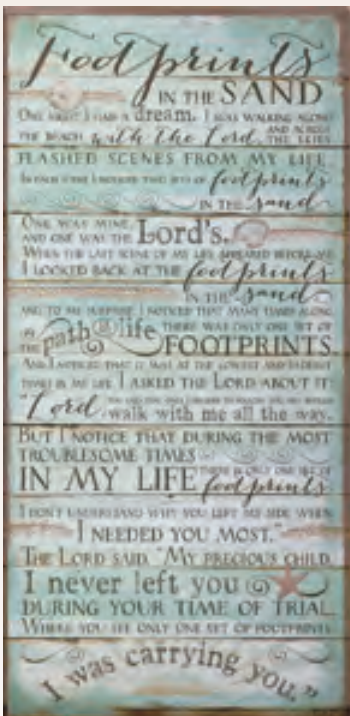 Footprints
IN THE SAND
ONE NIGHT I HAD A dream. I WAS WALKING ALONG
THE BEACH with the Lord, AND ACROSS THE SKIES
FLASHED SCENES FROM MY LIFE.
IN EACH SCENE I NOTICED TWO SETS OF footprints
IN THE sand
ONE WAS MINE,
AND ONE WAS THE Lord's.
WHEN THE LAST SCENE OF MY LIFE APPEARED BEFORE ME
I LOOKED BACK AT THE footprints
IN THE sand
AND TO MY SURPRISE, I NOTICED THAT MANY TIMES ALONG
THE path of life THERE WAS ONLY ONE SET OF
FOOTPRINTS.
AND I NOTICED THAT IT WAS AT THE LOWEST AND SADDEST
TIMES IN MY LIFE. I ASKED THE LORD ABOUT IT:
"Lord, walk with me all the way.
BUT I NOTICE THAT DURING THE MOST
TROUBLESOME TIMES
IN MY LIFE THERE IS ONLY ONE SET OF footprints
I DON'T UNDERSTAND WHY YOU LEFT MY SIDE WHEN
I NEEDED YOU MOST."
THE LORD SAID, "MY PRECIOUS CHILD,
I never left you
DURING YOUR TIME OF TRIAL.
WHERE YOU SEE ONLY ONE SET OF FOOTPRINTS
I was carrying you."